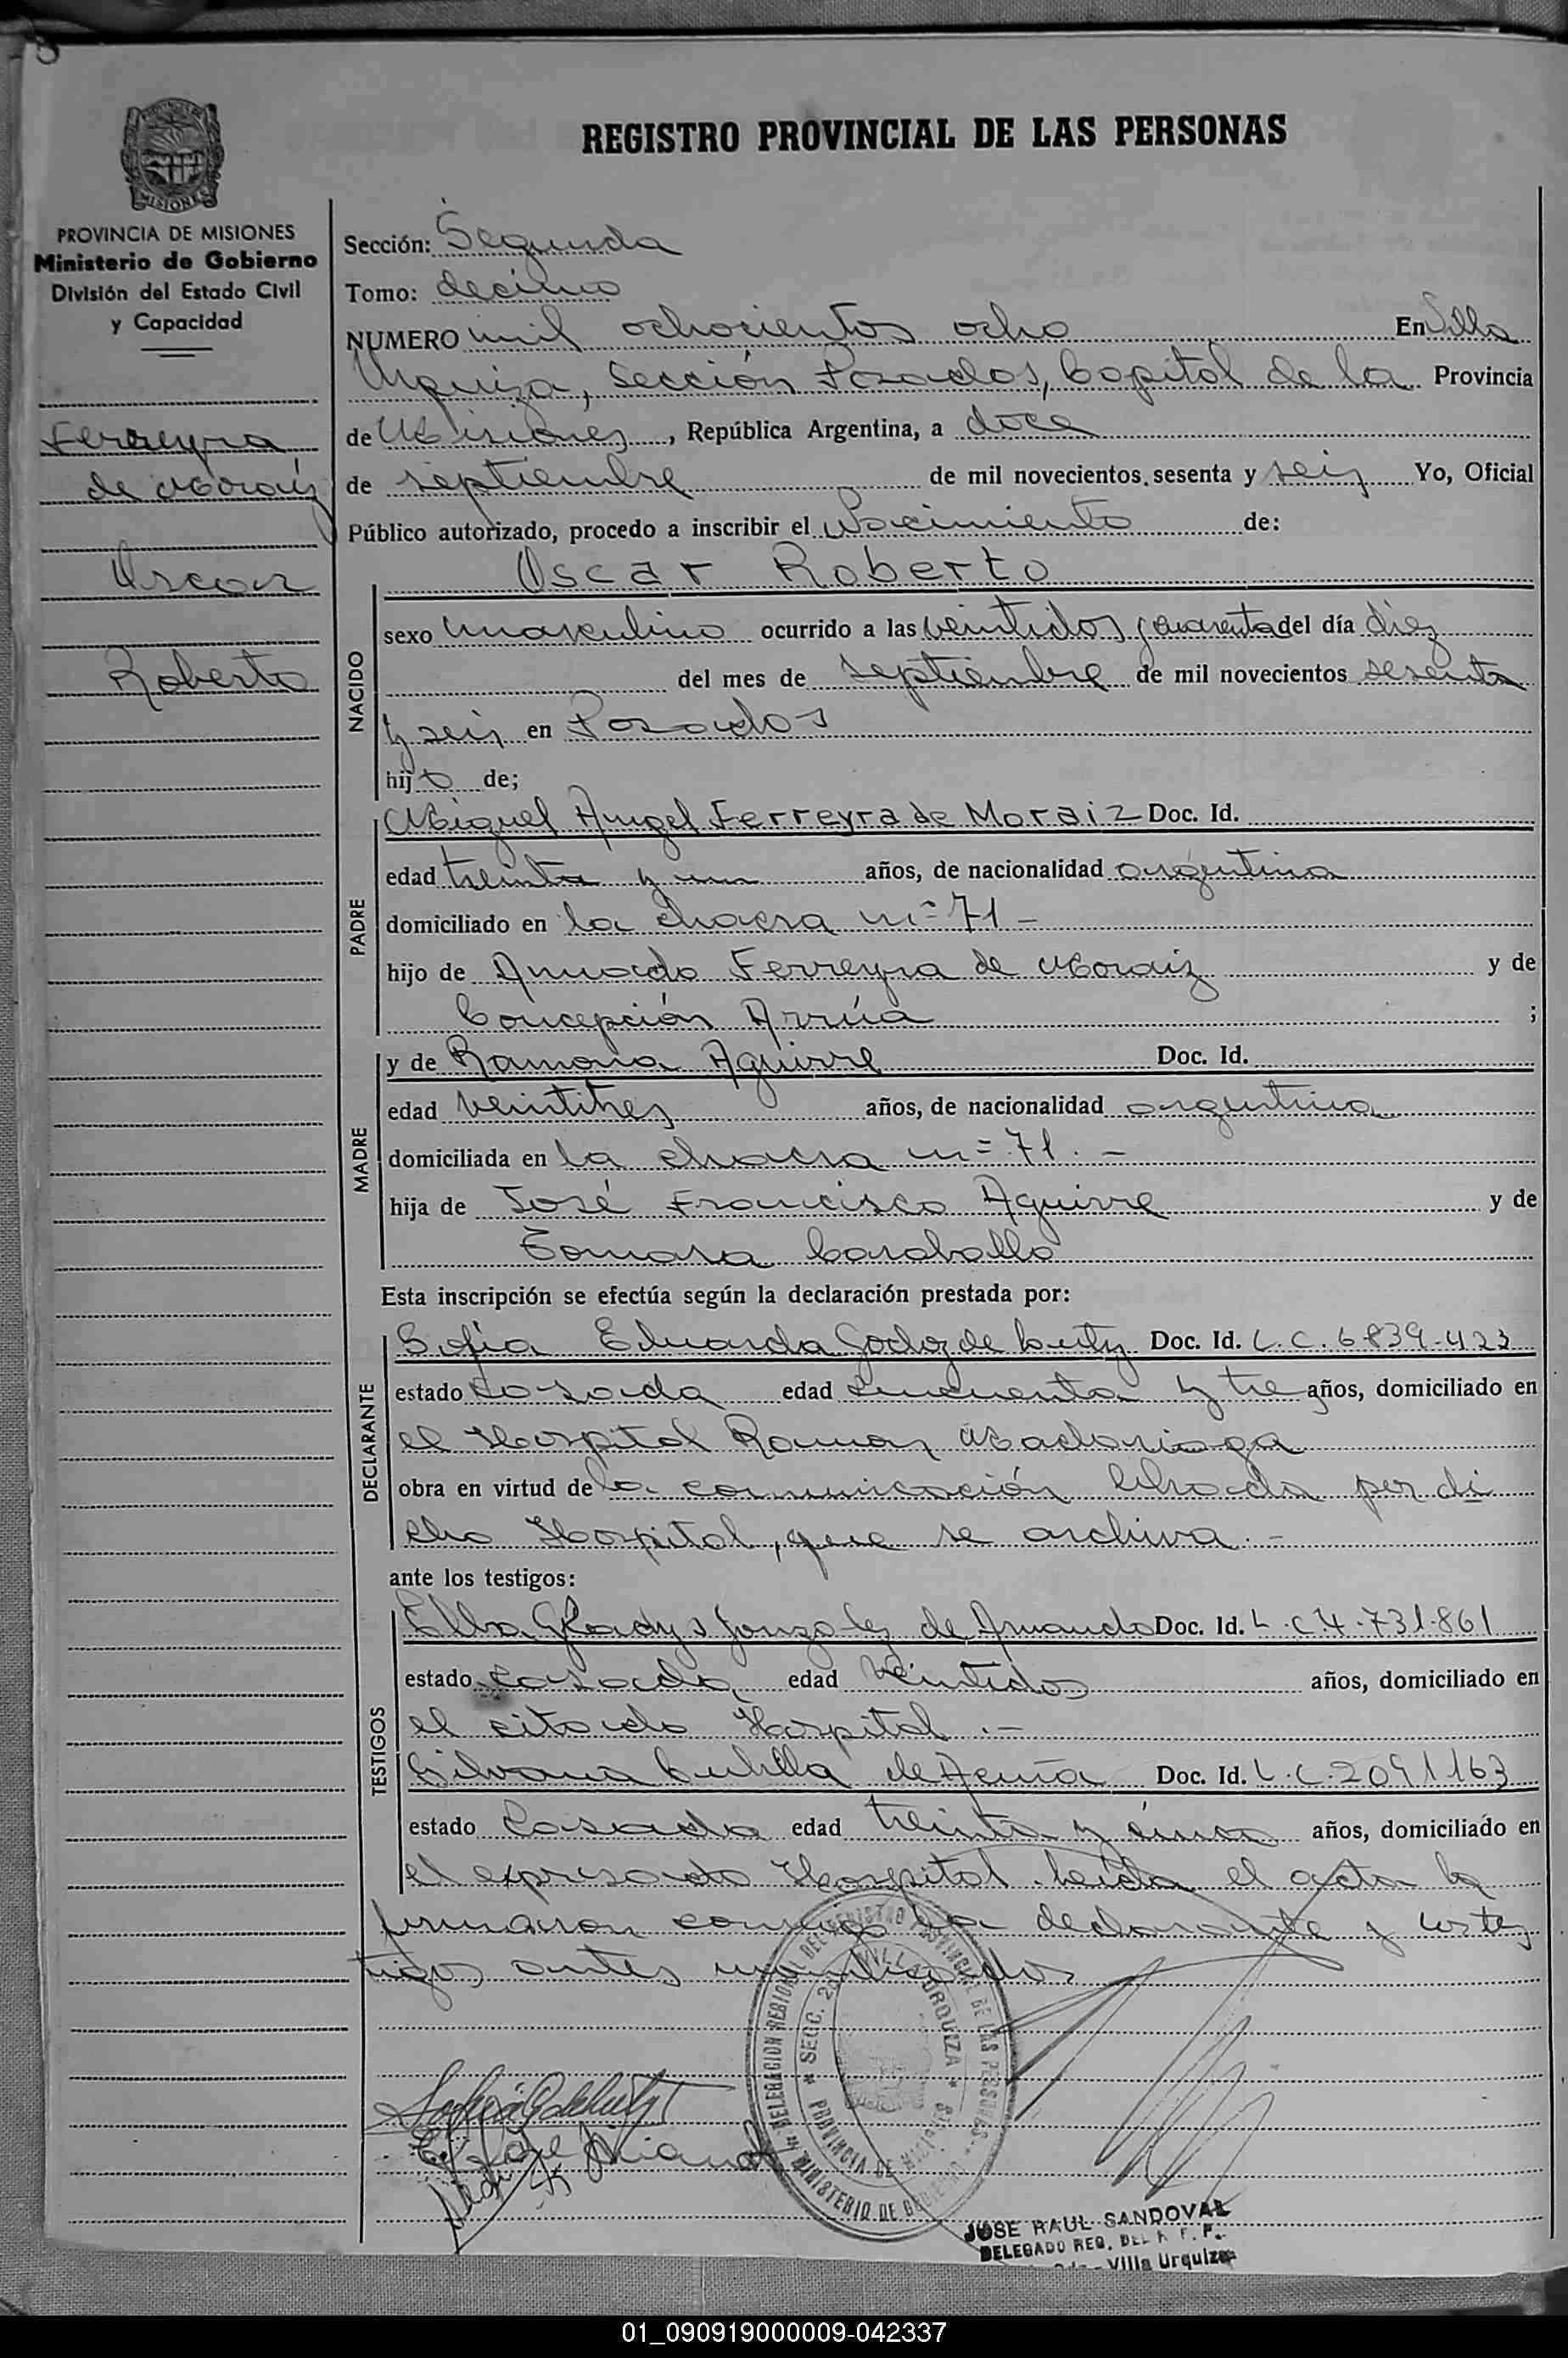 REGISTRO PROVINCIAL DE LAS PERSONAS
MISIONES
PROVINCIA DE MISIONES
Ministerio de Gobierno
División del Estado Civil
y Capacidad
Ferreyra
de Moraiz
Oscar
Roberto
Sección: Segunda
Tomo: decimo
NUMERO mil ochocientos ocho En Villa
Urquiza, Sección Posadas, Capital de la Provincia
de Misiones, República Argentina, a doce
de septiembre de mil novecientos sesenta y seis Yo, Oficial
Público autorizado, procedo a inscribir el Nacimiento de:
NACIDO
Oscar Roberto
sexo masculino ocurrido a las veintidos y cuarenta del día diez
del mes de septiembre de mil novecientos sesenta
y seis en Posadas
hijo de;
PADRE
Miguel Angel Ferreyra de Moraiz Doc. Id.
edad treinta y un años, de nacionalidad argentina
domiciliado en la chacra n=71 -
hijo de Amado Ferreyra de Moraiz y de
Concepción Arrúa ;
MADRE
y de Ramona Aguirre Doc. Id.
edad veintitres años, de nacionalidad argentina
domiciliada en la chacra n=71. -
hija de José Francisco Aguirre y de
Tomasa Caraballo
Esta inscripción se efectúa según la declaración prestada por:
DECLARANTE
Sofia Eduarda Godoy de Doc. Id. L.C. 6839-423
estado casada edad cincuenta y tres años, domiciliado en
el Hospital Ramon Madariaga
obra en virtud de la comunicación librada por di
cho Hospital, que se archiva. -
ante los testigos:
TESTIGOS
Elba Gladys Gonzalez de Doc. Id. L.C 4.731.861
estado casada edad veintidos años, domiciliado en
el citado Hospital .-
Silvana de Acuña Doc. Id. L.C. 2091163
estado Casada edad treinta y cinco años, domiciliado en
el expresado Hospital. Leida el acta la
firmaron conmigo la declarante y testigos
antes nombrados
DELEGACION REGIONAL DEL REGISTRO PROVINCIAL DE LAS PERSONAS
SECC. 2da VILLA URQUIZA
PROVINCIA DE MISIONES
MINISTERIO DE GOBIERNO
JOSE RAUL SANDOVAL
DELEGADO REG. DEL R. P. P.
Villa Urquiza
01_090919000009-042337